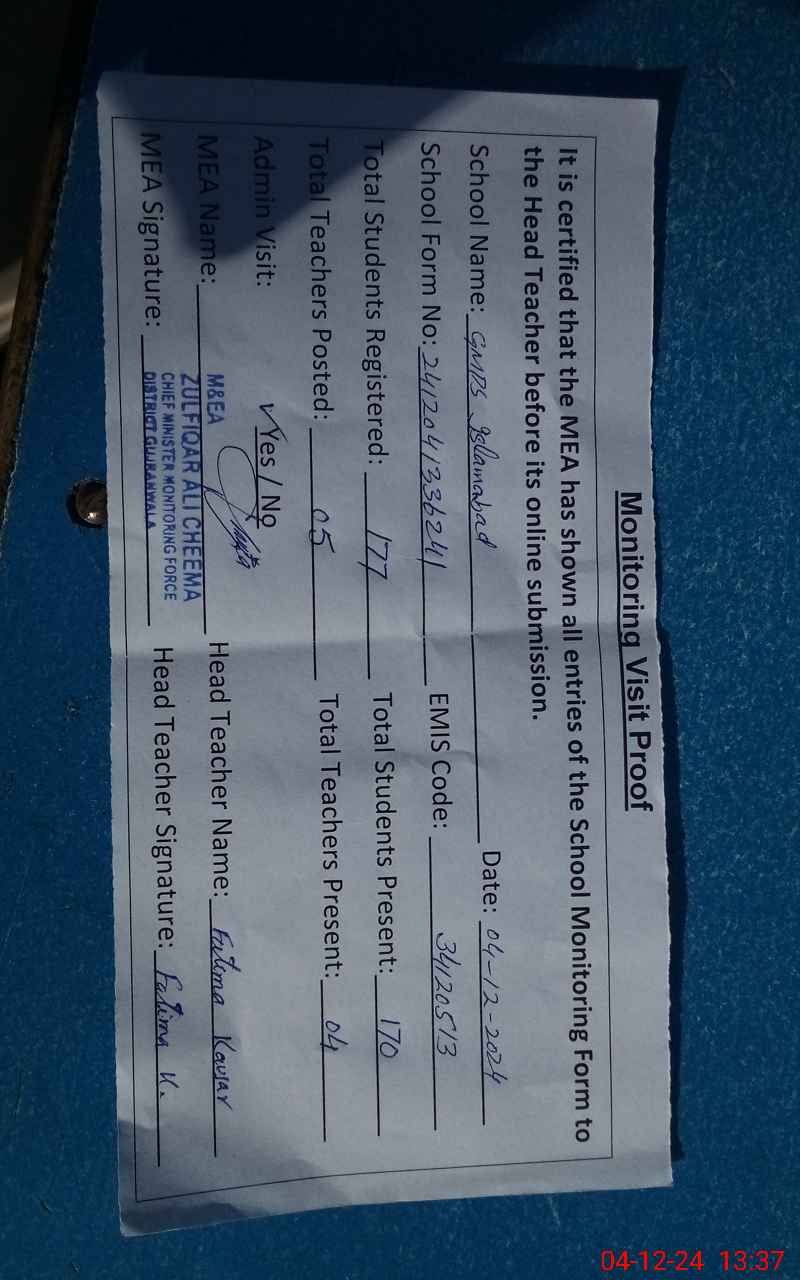 Monitoring Visit Proof
It is certified that the MEA has shown all entries of the School Monitoring Form to
the Head Teacher before its online submission.
School Name: GMPS Islamabad Date: 04-12-2024
School Form No: 2412041336241 EMIS Code: 34120513
Total Students Registered: 177 Total Students Present: 170
Total Teachers Posted: 05 Total Teachers Present: 04
Admin Visit: ✓Yes / No
MEA Name: Head Teacher Name: Fatima Kausar
M&EA
ZULFIQAR ALI CHEEMA
CHIEF MINISTER MONITORING FORCE
DISTRICT GUJRANWALA
MEA Signature: Head Teacher Signature: Fatima K.
04-12-24 13:37